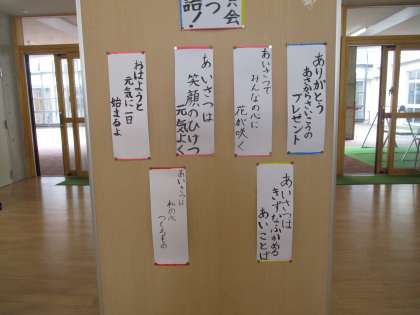 会
つ
語！
ありがとう
あさからさいこうの
プレゼント
あいさつで
みんなの心に
花が咲く
あいさつは
笑顔のひけつ
元気よく
おはようと
元気に一日
始まるよ
あいさつは
きずなふかめる
あいことば
あいさつは
私の心
つくるもの